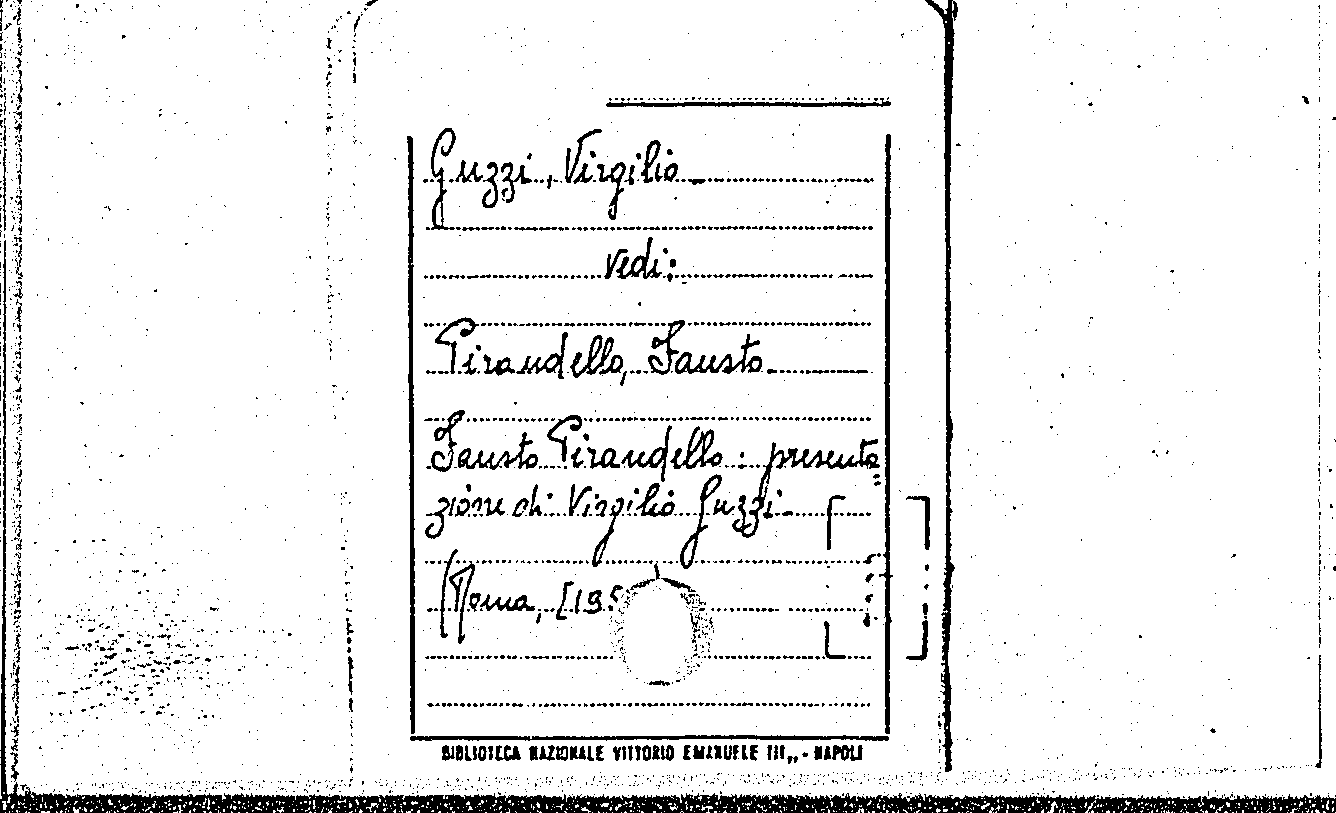 Guzzi, Virgilio
vedi:
Pirandello, Fausto
Fausto Pirandello : presenta
zione di Virgilio Guzzi
Roma, [195
BIBLIOTECA NAZIONALE VITTORIO EMANUELE III„ - NAPOLI